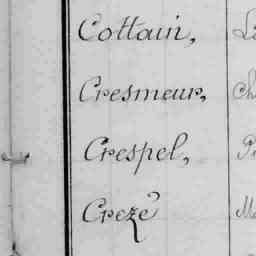 Cottain,
Cresmeur,
Crespel,
Crezé